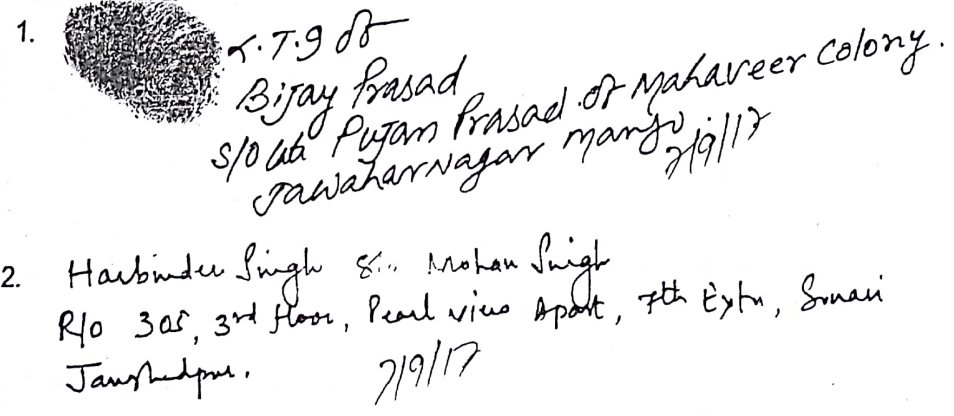 1. L.T.I of
Bijay Prasad
S/o Late Pujan Prasad of Mahaveer Colony.
Jawahar Nagar Mango 7/9/17
2. Harbinder Singh S/o Mohan Singh
R/o 305, 3rd floor, Pearl view Apart, 7th Extn, Sonari
Jamshedpur. 7/9/17